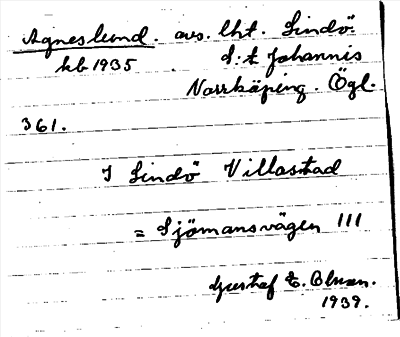 Agneslund. avs. lht. Lindö.
kb 1935 S:t Johannis
Norrköping. Ögl.
361.
I Lindö Villastad
= Sjömansvägen 111
Gustaf E. Olsson.
1939.